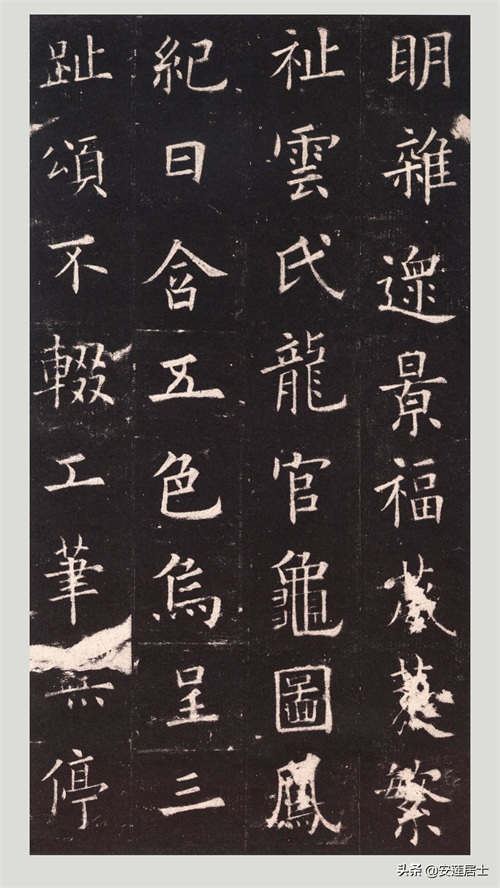 明雜遝景福葳蕤繁
祉雲氏龍官龜圖鳳
紀日含五色烏呈三
趾頌不輟工筆無停
头条 @安莲居士